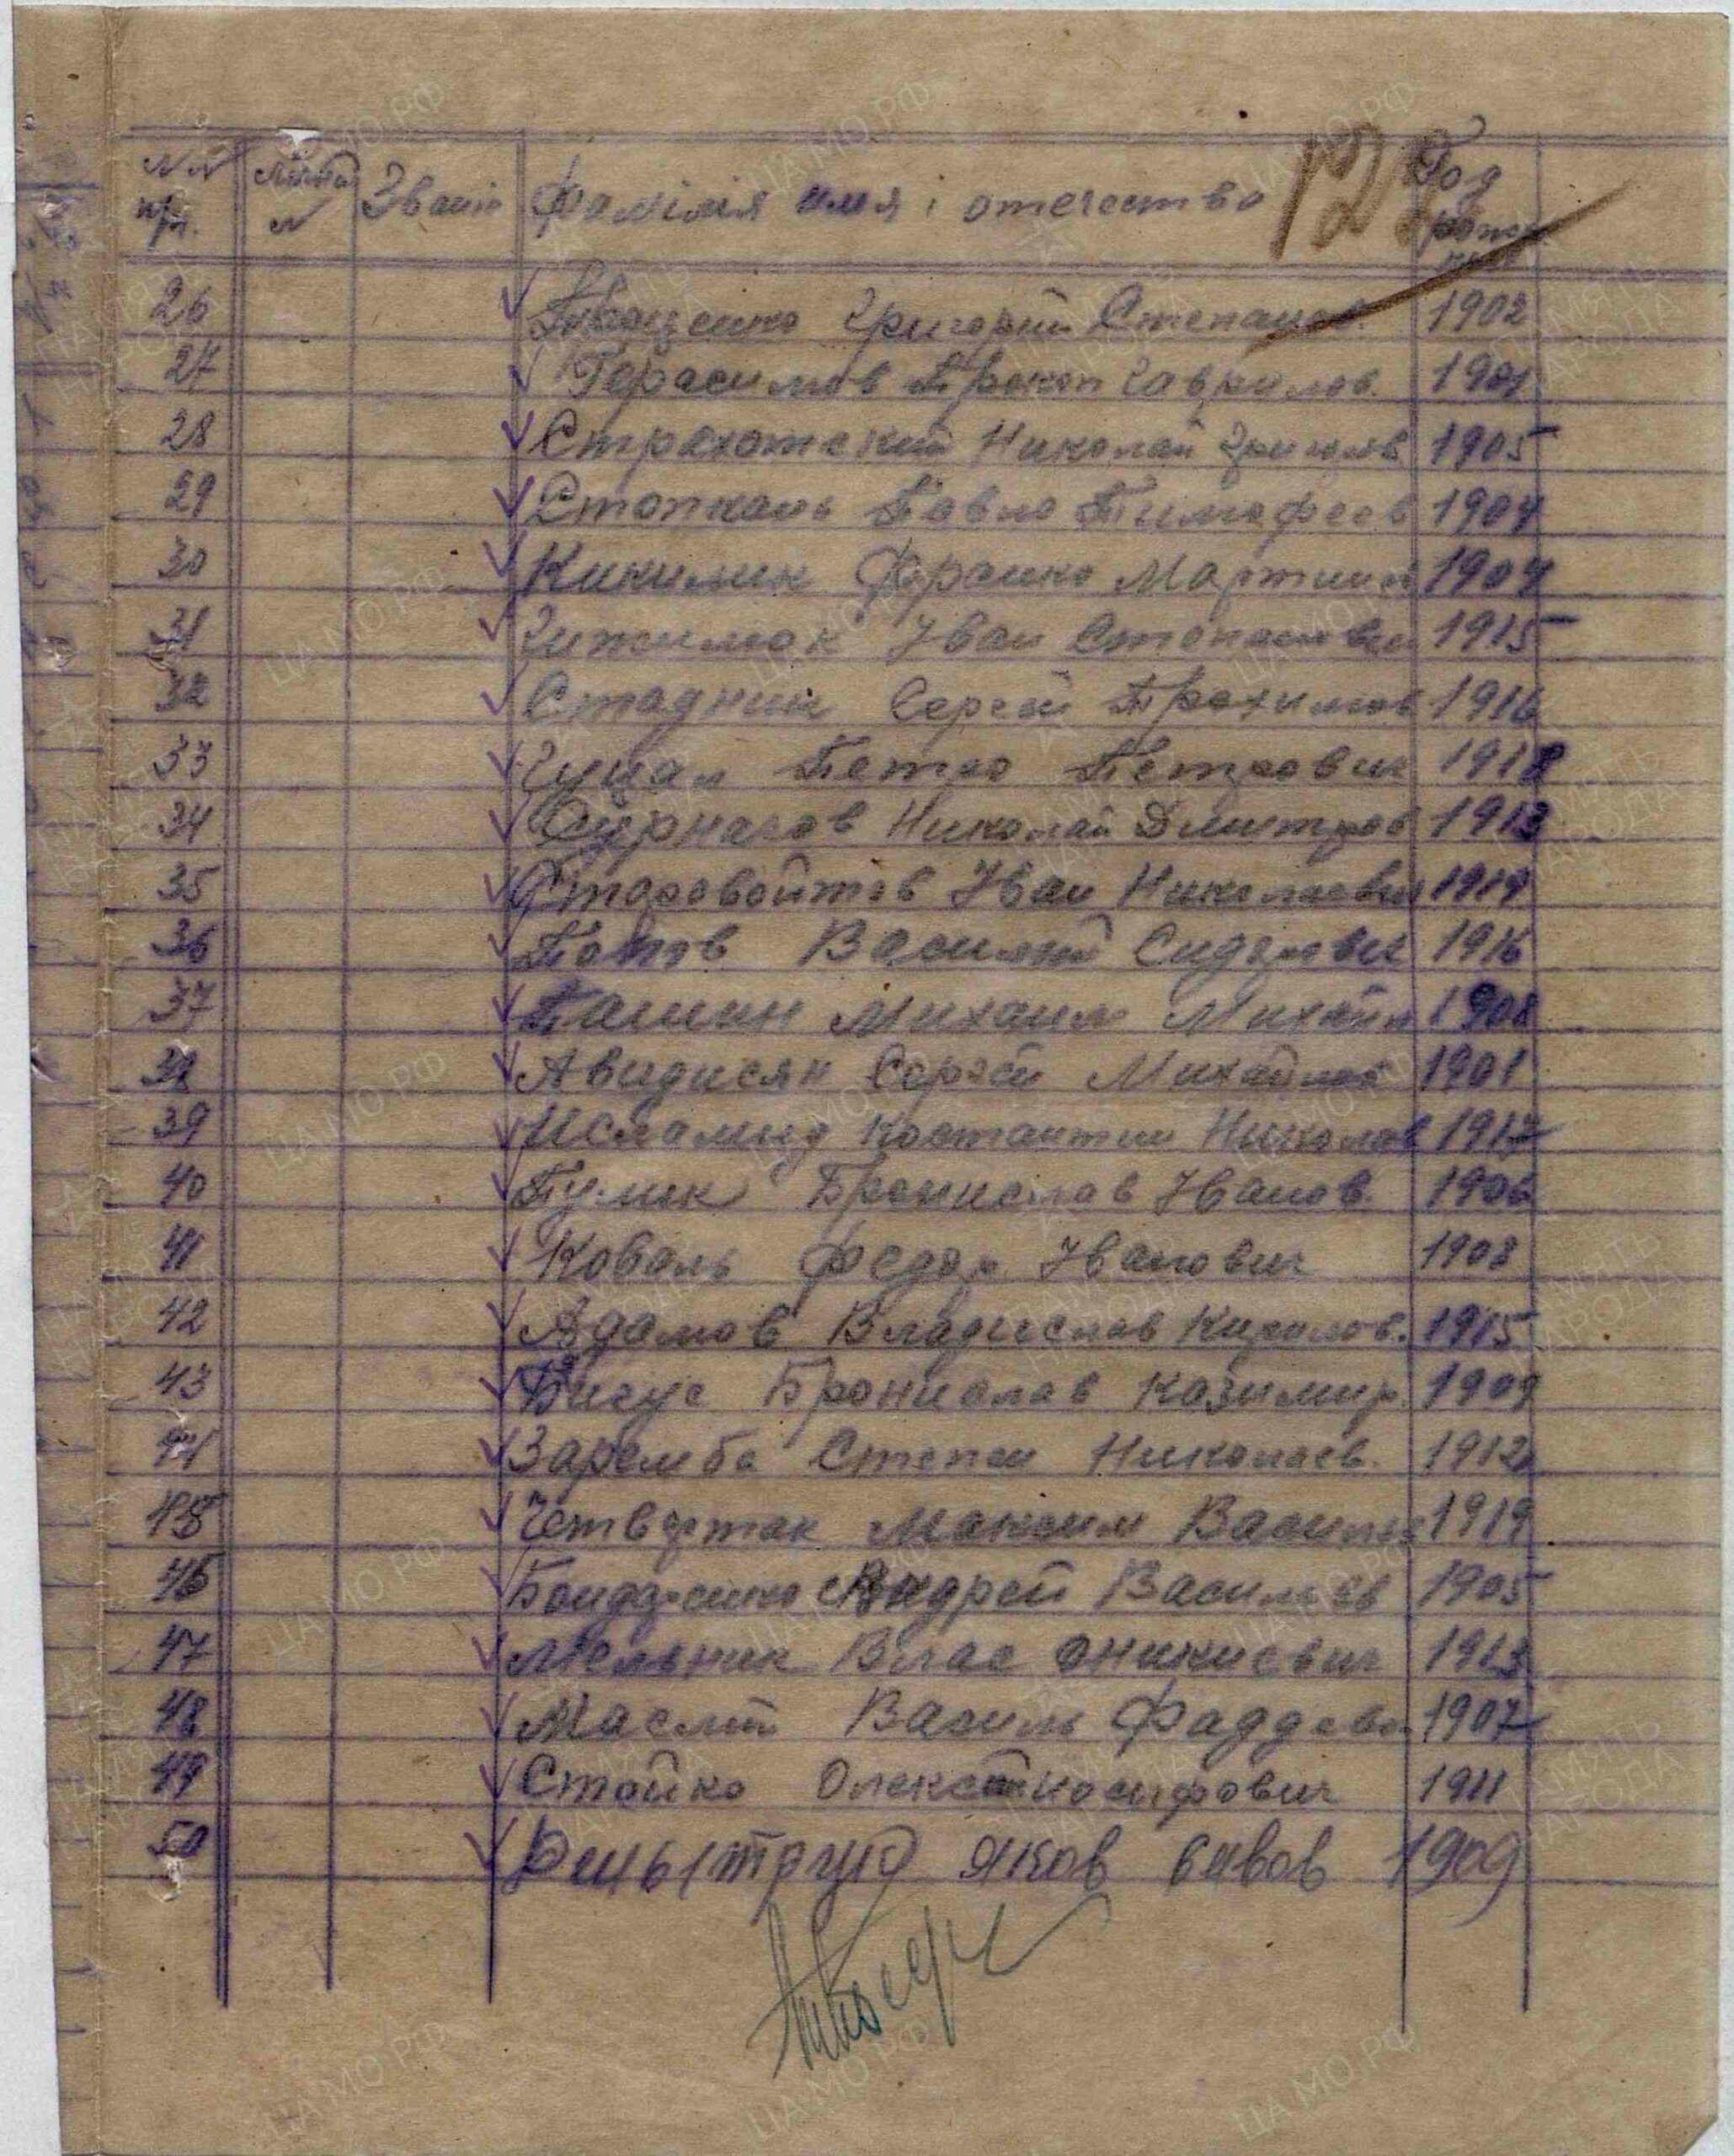 №№ п/п. № Званіе Фамілія имя і отечество 128 Год рожд
26 Григорий Степанов. 1902
27 Герасимов Прокоп Гаврилов. 1901
28 Страхотский Николай Григорьев 1905
29 Павло Тимофеев 1904
30 Кикилик Франко Мартинов 1904
31 Іван Степанович 1915
32 Стадник Сергей Трохимов 1916
33 Гуцал Петро Петрович 1918
34 Николай Дмитров 1913
35 Старовойтов Іван Николаевич 1919
36 Попов Василий Сидорович 1916
37 Пашин Михаил Михайл 1908
38 Авидисян Сергей Михайлов 1901
39 Костантин Николаев 1917
40 Бронислав Іванов. 1906
41 Коваль Федор Іванович 1908
42 Адамов Владислав Кирилов. 1915
43 Бигус Бронислав Казимир. 1909
44 Заремба Степан Николаев. 1912
45 Четвертак Максим Васильев 1919
46 Бондаренко Андрей Васильев 1905
47 Мельник Влас Оникиевич 1913
48 Маслий Василь Фаддеевич 1907
49 Стойко Олексей Иосифович 1911
50 Яков Савов 1909